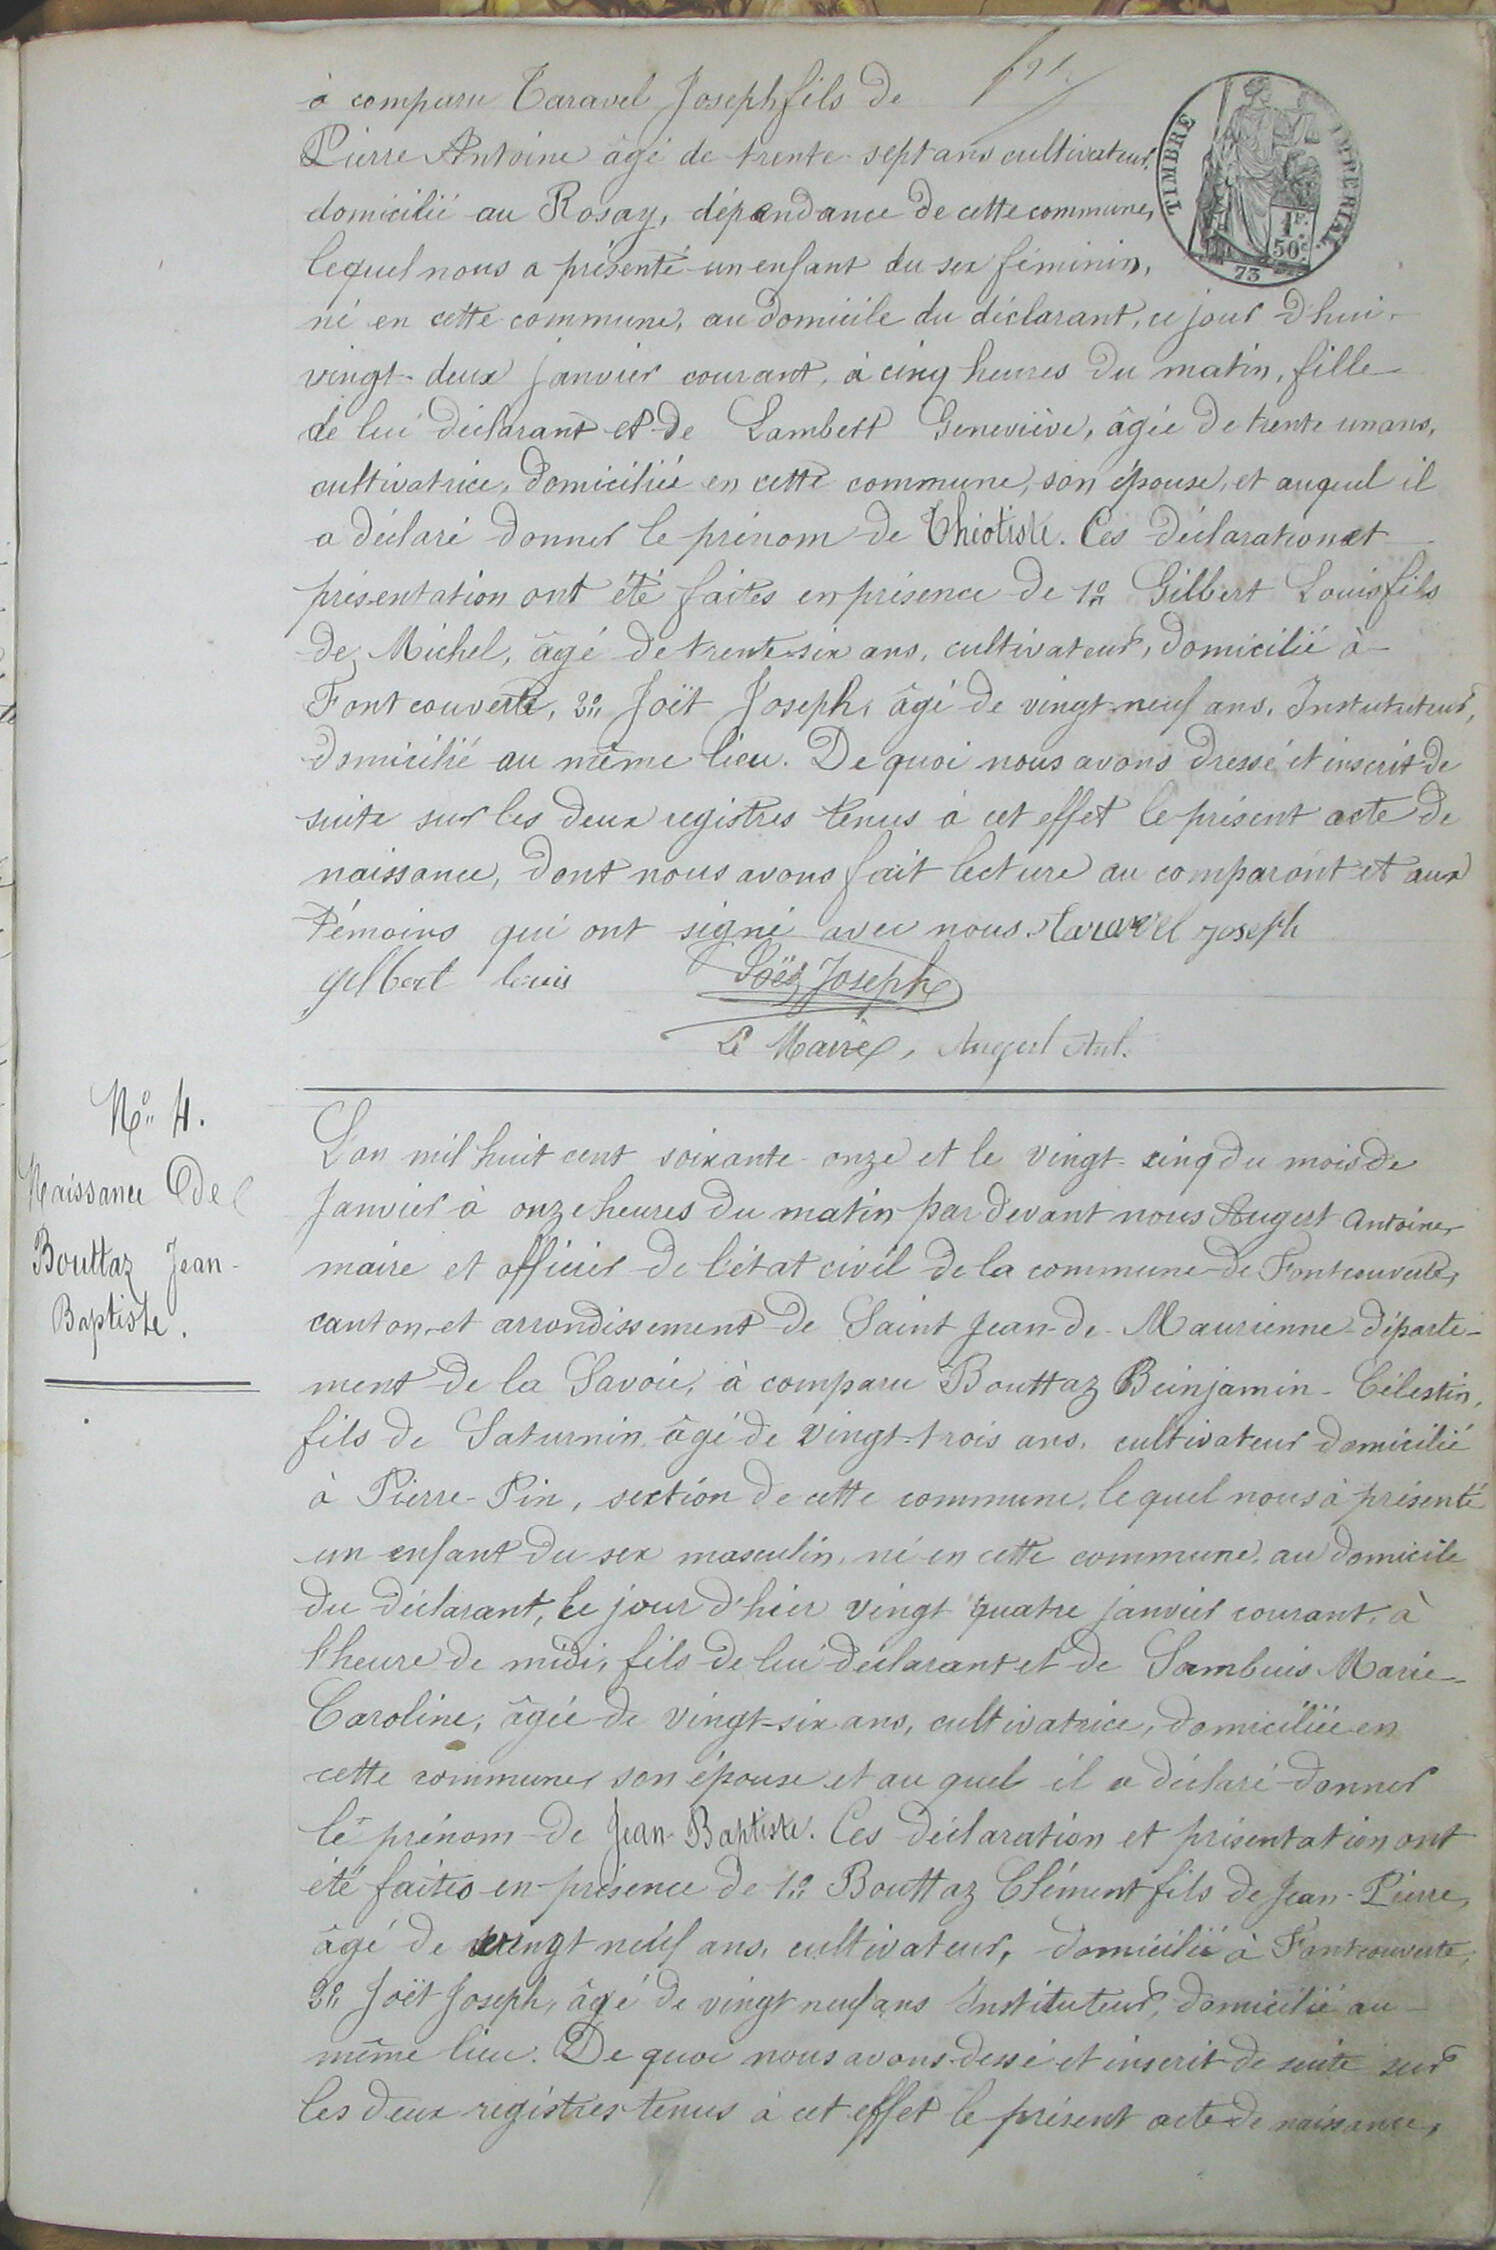 à comparu Taravel Joseph fils de
Pierre Antoine âgé de trente-sept ans cultivateur,
domicilié au Rosay, dépendance de cette commune,
lequel nous a présenté un enfant du sex féminin,
né en cette commune, au domicile du déclarant, ce jour d'hui
vingt-deux janvier courant, à cinq heures du matin, fille
de lui déclarant et de Lambert Geneviève, âgée de trente un ans,
cultivatrice, domiciliée en cette commune, son épouse, et auquel il
a déclaré donner le prénom de Théotiste. Ces déclaration et
présentation ont été faites en présence de 1° Gilbert Louis fils
de Michel, âgé de trente-six ans, cultivateur, domicilié à
Fontcouverte, 2° Joët Joseph, âgé de vingt-neuf ans, Instututeur,
domicilié au même lieu. De quoi nous avons dressé et inscrit de
suite sur les deux registres tenus à cet effet le présent acte de
naissance, dont nous avons fait lecture au comparant et aux
témoins qui ont signé avec nous. taravel joseph
gilbert louis Joët Joseph
Le Maire, Augert Ant.
TIMBRE IMPERIAL
1F. 50c
73
N° 4.
Naissance de
Bouttaz Jean-
Baptiste.
L'an mil huit cent soixante-onze et le vingt-cinq du mois de
Janvier à onze heures du matin par devant nous Augert Antoine,
maire et officier de l'état civil de la commune de Fontcouverte,
canton et arrondissement de Saint Jean-de-Maurienne départe-
ment de la Savoie, à comparu Bouttaz Beinjamin-Célestin,
fils de Saturnin, âgé de vingt-trois ans, cultivateur domicilié
à Pierre-Pin, section de cette commune, lequel nous à présenté
un enfant du sex masculin, né en cette commune, au domicile
du déclarant, le jour d'hier vingt quatre janvier courant, à
l'heure de midi, fils de lui déclarant et de Sambuis Marie-
Caroline, âgée de vingt-six ans, cultivatrice, domiciliée en
cette commune, son épouse et au quel il a déclaré donner
le prénom de Jean-Baptiste. Ces déclaration et présentation ont
été faites en présence de 1° Bouttaz Clément fils de Jean-Pierre,
âgé de vingt neuf ans, cultivateur, domicilié à Fontcouverte,
2° Joët Joseph, âgé de vingt neuf ans Instituteur, domicilié au
même lieu. De quoi nous avons dessé et inscrit de suite sur
les deux registres tenus à cet effet le présent acte de naissance,